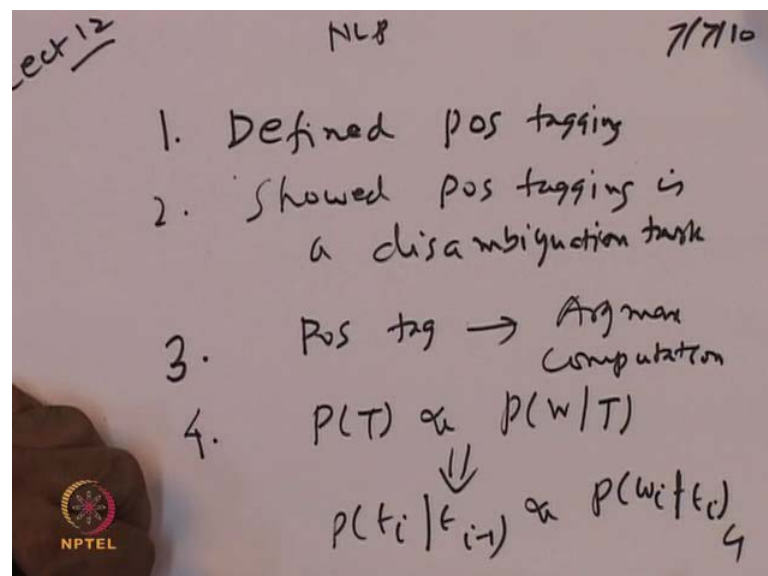 Lect 12 NLP 7/7/10
1. Defined pos tagging
2. Showed pos tagging is
a disambiguation task
3. Pos tag → Argmax
Computation
4. P(T) & P(W/T)
⇓
P(ti|ti-1) & P(wi|ti)
4
NPTEL